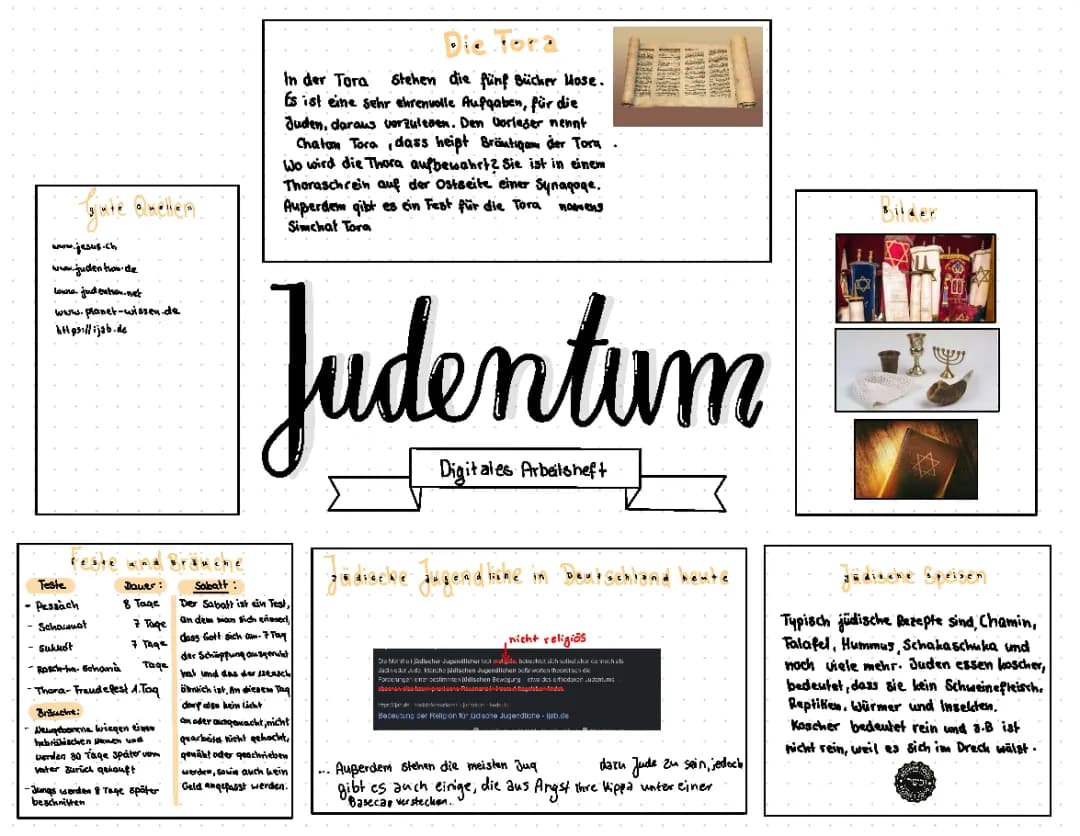 Die Tora
In der Tora stehen die fünf Bücher Mose.
Es ist eine sehr ehrenvolle Aufgaben, für die
Juden, daraus vorzulesen. Den Vorleser nennt
Chatan Tora, dass heißt Bräutigam der Tora.
Wo wird die Thora aufbewahrt? Sie ist in einem
Thoraschrein auf der Ostseite einer Synagoge.
Außerdem gibt es ein Fest für die Tora namens
Simchat Tora
Gute Quellen
www.jesus.ch
www.judentum.de
www.judentum.net
www.planet-wissen.de
https://ijab.de
Bilder
Judentum
Digitales Arbeitsheft
Feste und Bräuche
Feste Dauer:
- Pessach 8 Tage
- Schawuot 7 Tage
- Sukkot 7 Tage
- Rosch-ha-Schana Tage
- Thora-Freudefest 1.Tag
Bräuche:
- Neugeborene kriegen einen
hebräischen Namen und
werden 30 Tage später vom
Vater zurück gekauft
- Jungs werden 8 Tage später
beschnitten
Sabatt:
Der Sabatt ist ein Fest,
an dem man sich erinnert,
dass Gott sich am 7 Tag
der Schöpfung ausgeruht
hat und das der Mensch
Ähnlich ist, An diesem Tag
darf also kein Licht
an oder ausgemacht, nicht
gearbeitet nicht gekocht,
genäht oder geschrieben
werden, sowie auch kein
Geld angefasst werden.
Jüdische Jugendliche in Deutschland heute
nicht religiös
Bedeutung der Religion für jüdische Jugendliche - ijab.de
... Außerdem stehen die meisten Jug dazu Jude zu sein, jedoch
gibt es auch einige, die aus Angst ihre Kippa unter einer
Basecap verstecken.
Jüdische Speisen
Typisch jüdische Rezepte sind, Chamin,
Falafel, Hummus, Schakaschuka und
noch viele mehr. Juden essen koscher,
bedeutet, dass sie kein Schweinefleisch,
Reptilien, Würmer und Insekten.
Koscher bedeutet rein und z.B ist
nicht rein, weil es sich im Dreck wälzt.